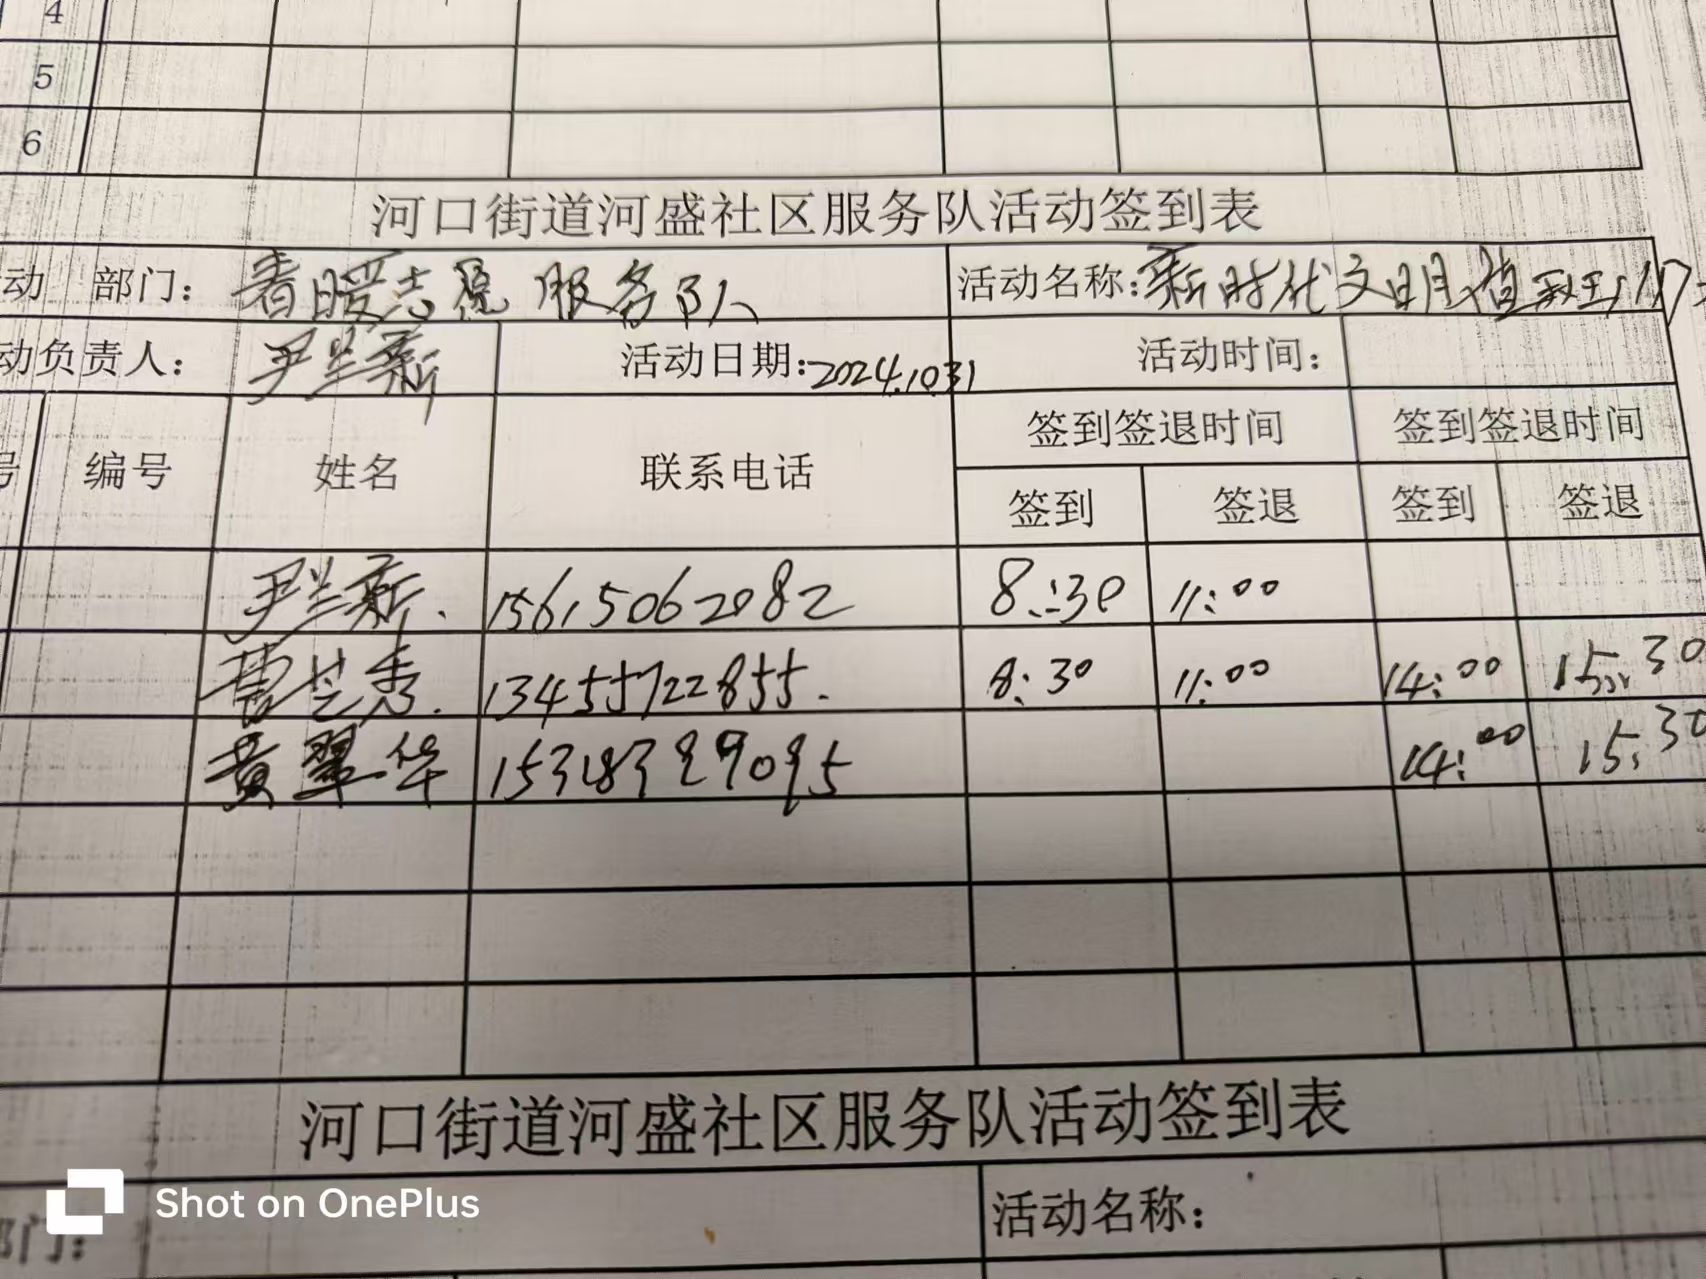 4
5
6
河口街道河盛社区服务队活动签到表
动 部门: 春暖志愿服务队 活动名称: 新时代文明
动负责人: 尹兰新 活动日期: 2024.10.31 活动时间:
号 编号 姓名 联系电话 签到签退时间 签到签退时间
签到 签退 签到 签退
尹兰新. 15615062082 8:30 11:00
曹芝秀. 13455722855. 8:30 11:00 14:00 15:30
黄翠华 14:00 15:30
河口街道河盛社区服务队活动签到表
部门: 活动名称:
Shot on OnePlus